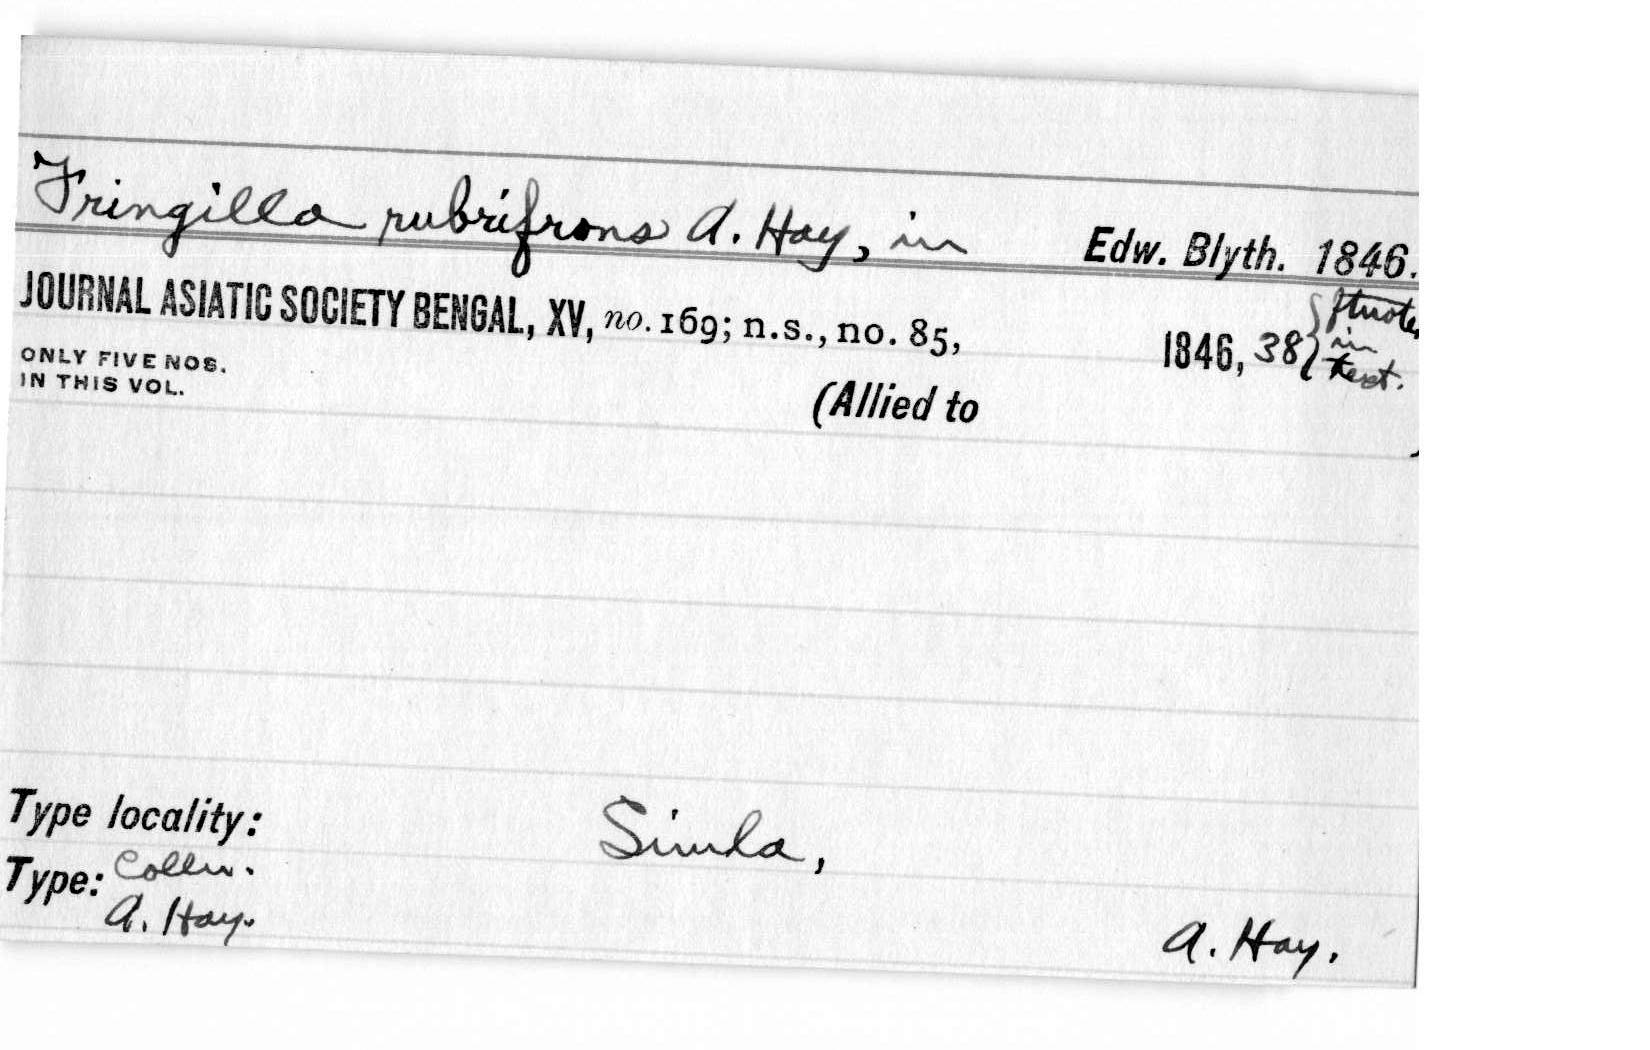 Fringilla rubrifrons A. Hay, in Edw. Blyth. 1846.
JOURNAL ASIATIC SOCIETY BENGAL, XV, no. 169; n.s., no. 85, 1846, 38 { ftnote, in text.
ONLY FIVE NOS.
IN THIS VOL.
(Allied to )
Type locality: Simla,
Type: Colln.
A. Hay.
A. Hay.